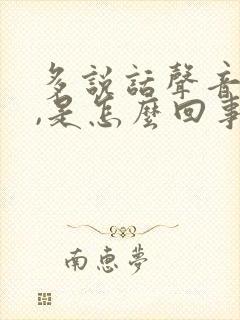 多説話聲音
,是怎麼回事
南惠夢